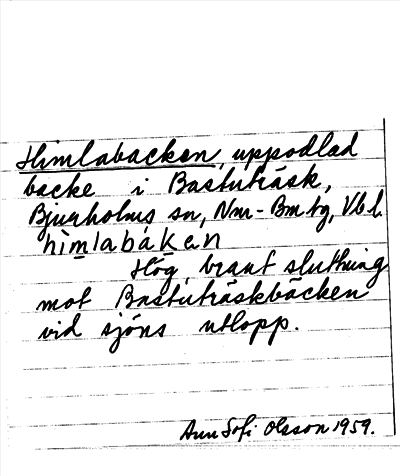 Himlabacken, uppodlad
backe i Bastuträsk,
Bjurholms sn, Nm-Bmtg, Vb l.
himlabaken
Hög, brant sluttning
mot Bastuträskbäcken
vid sjöns utlopp.
Ann Sofi Olsson 1959.